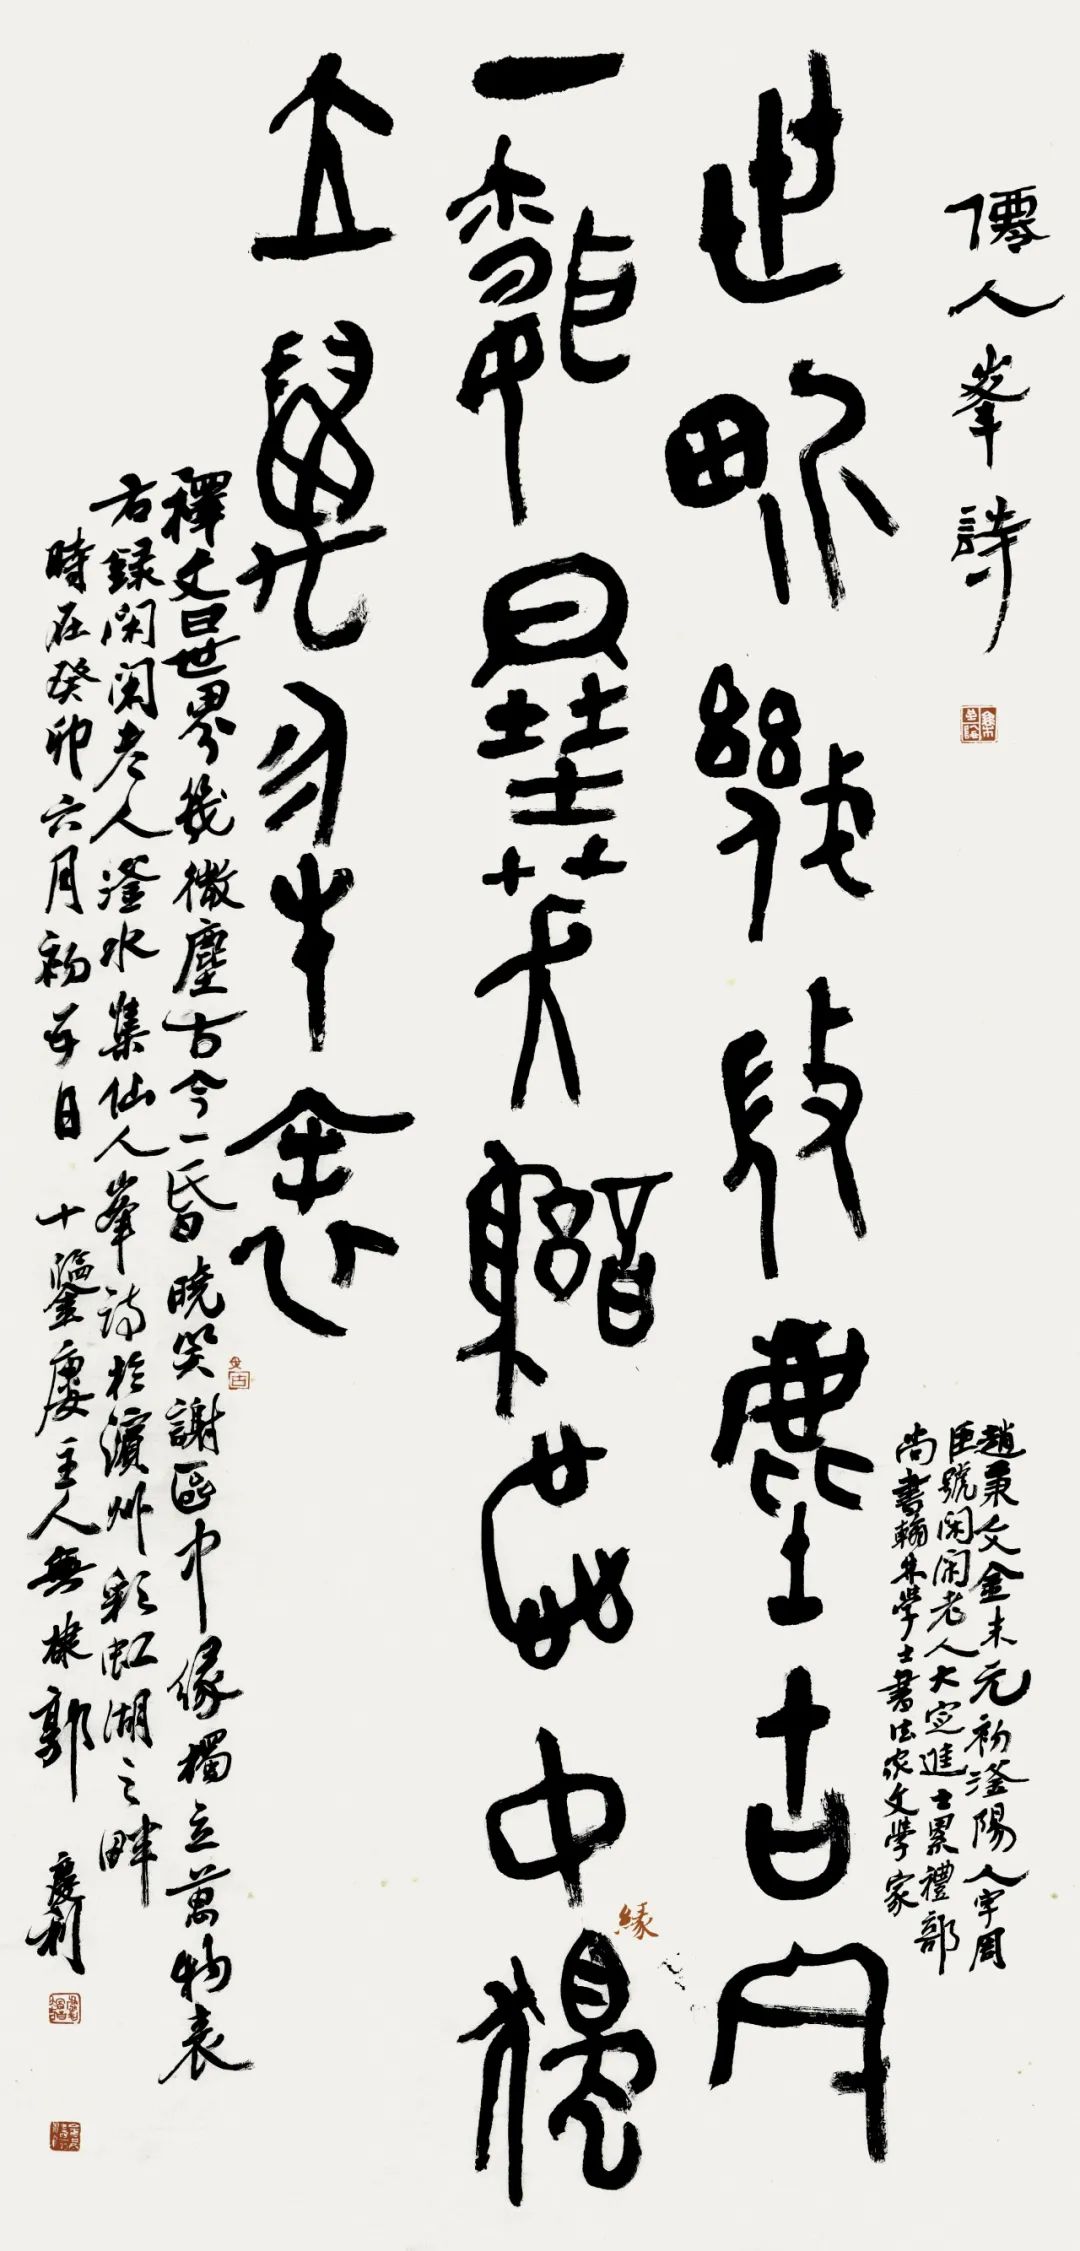 僊人峯詩
趙秉文金末元初滏陽人字周
臣號閑閑老人大定進士累禮部
尚書翰林學士書法家文學家
世界幾微塵古今
一昏曉笑謝區中獨
緣
立萬物表
釋文曰世界幾微塵古今一昏曉笑謝區中緣獨立萬物表
右録閑閑老人滏水集仙人峯詩於濱州彩虹湖之畔
時在癸卯六月初五日 十鑑廔主人無棣郭慶利